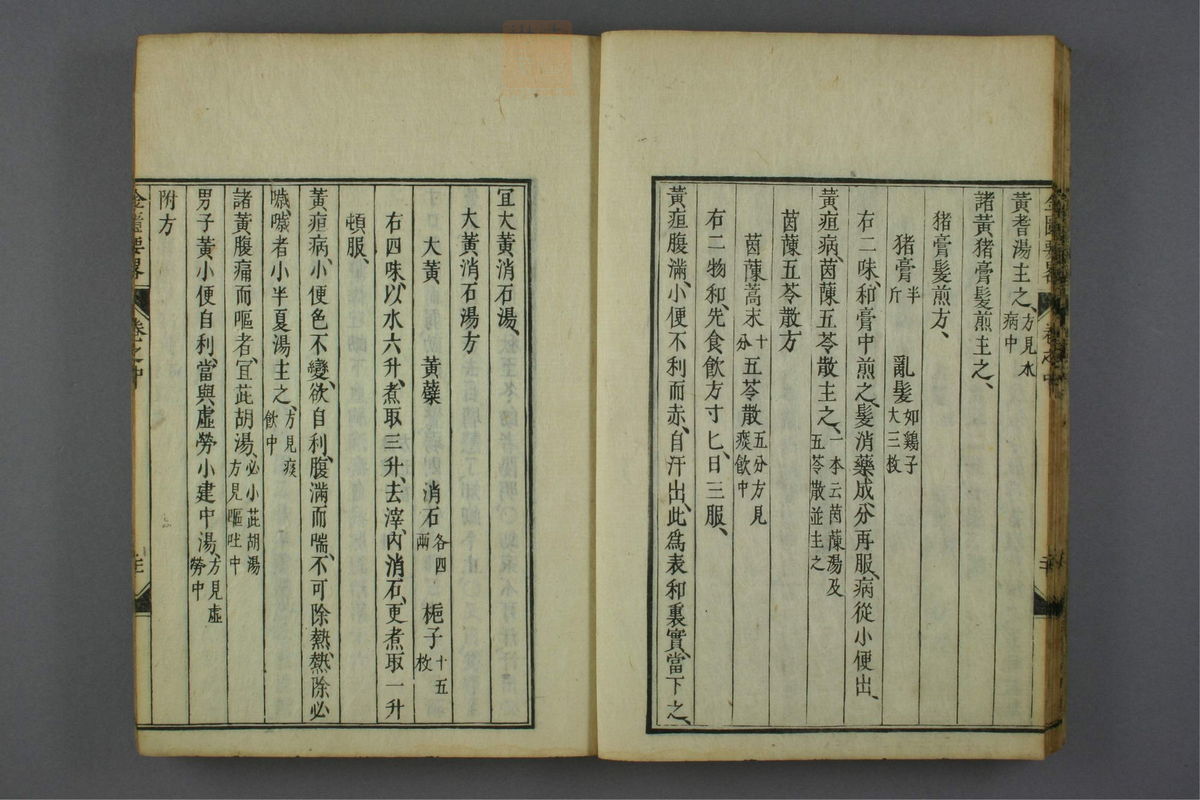 黃耆湯主之、方見水病中
諸黃猪膏髮煎主之、
猪膏髮煎方、
猪膏半斤 亂髮如鷄子大三枚
右二味、和膏中煎之、髮消藥成、分再服、病從小便出、
黃疸病、茵蔯五苓散主之、一本云茵蔯湯及五苓散並主之
茵蔯五苓散方
茵蔯蒿末十分 五苓散五分方見痰飲中
右二物和、先食飲方寸匕、日三服、
黃疸腹滿、小便不利而赤、自汗出、此爲表和裏實、當下之、
宜大黃消石湯、
大黃消石湯方
大黃 黃蘗 消石各四兩 梔子十五枚
右四味、以水六升、煮取三升、去滓、內消石、更煮取一升
頓服、
黃疸病、小便色不變、欲自利、腹滿而喘、不可除熱、熱除必
噦、噦者小半夏湯主之、方見痰飲中
諸黃腹痛而嘔者、宜茈胡湯、必小茈胡湯方見嘔吐中
男子黃、小便自利、當與虛勞小建中湯、方見虛勞中
附方
金匱要畧 卷之中